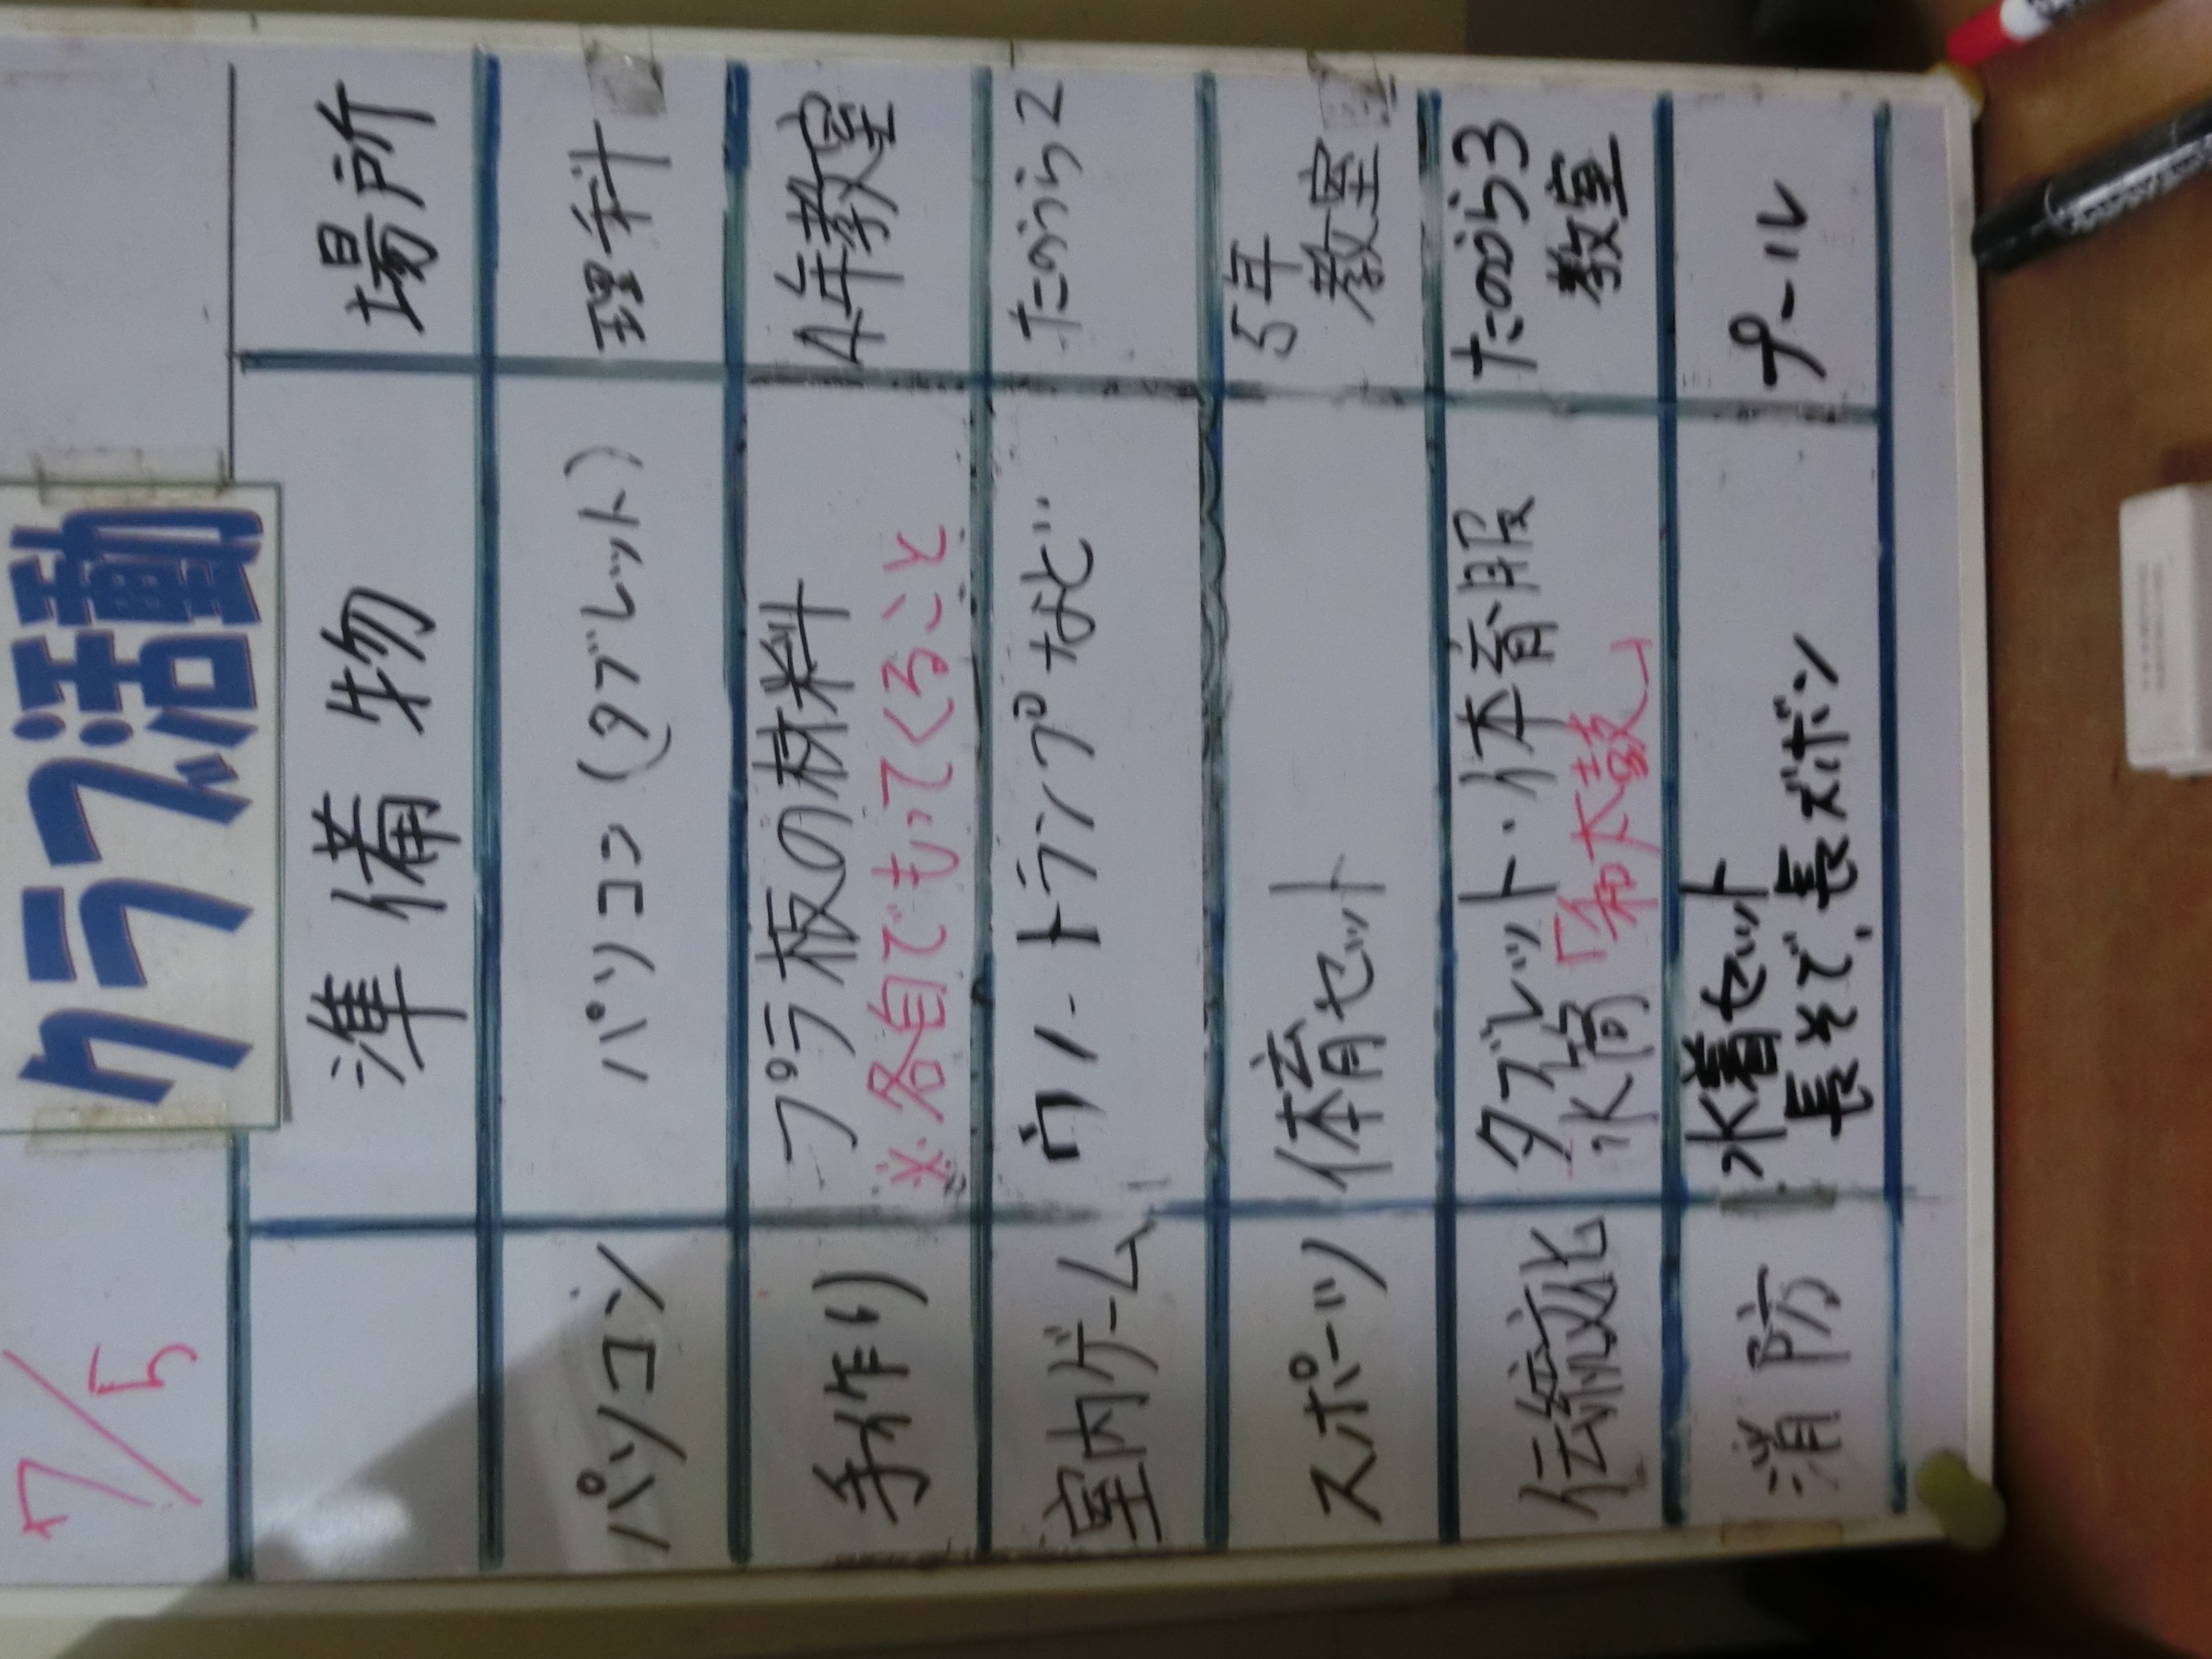 7/5
クラブ活動
準備物 場所
パソコン パソコン (タブレット) 理科
手作り プラ板の材料 4年教室
※各自でもってくること
室内ゲーム ウノ・トランプなど たのうら2
スポーツ 体育セット 5年
教室
伝統文化 タブレット・体育服 たのうら3
水筒 「和太鼓」 教室
消防 水着セット プール
長そで、長ズボン